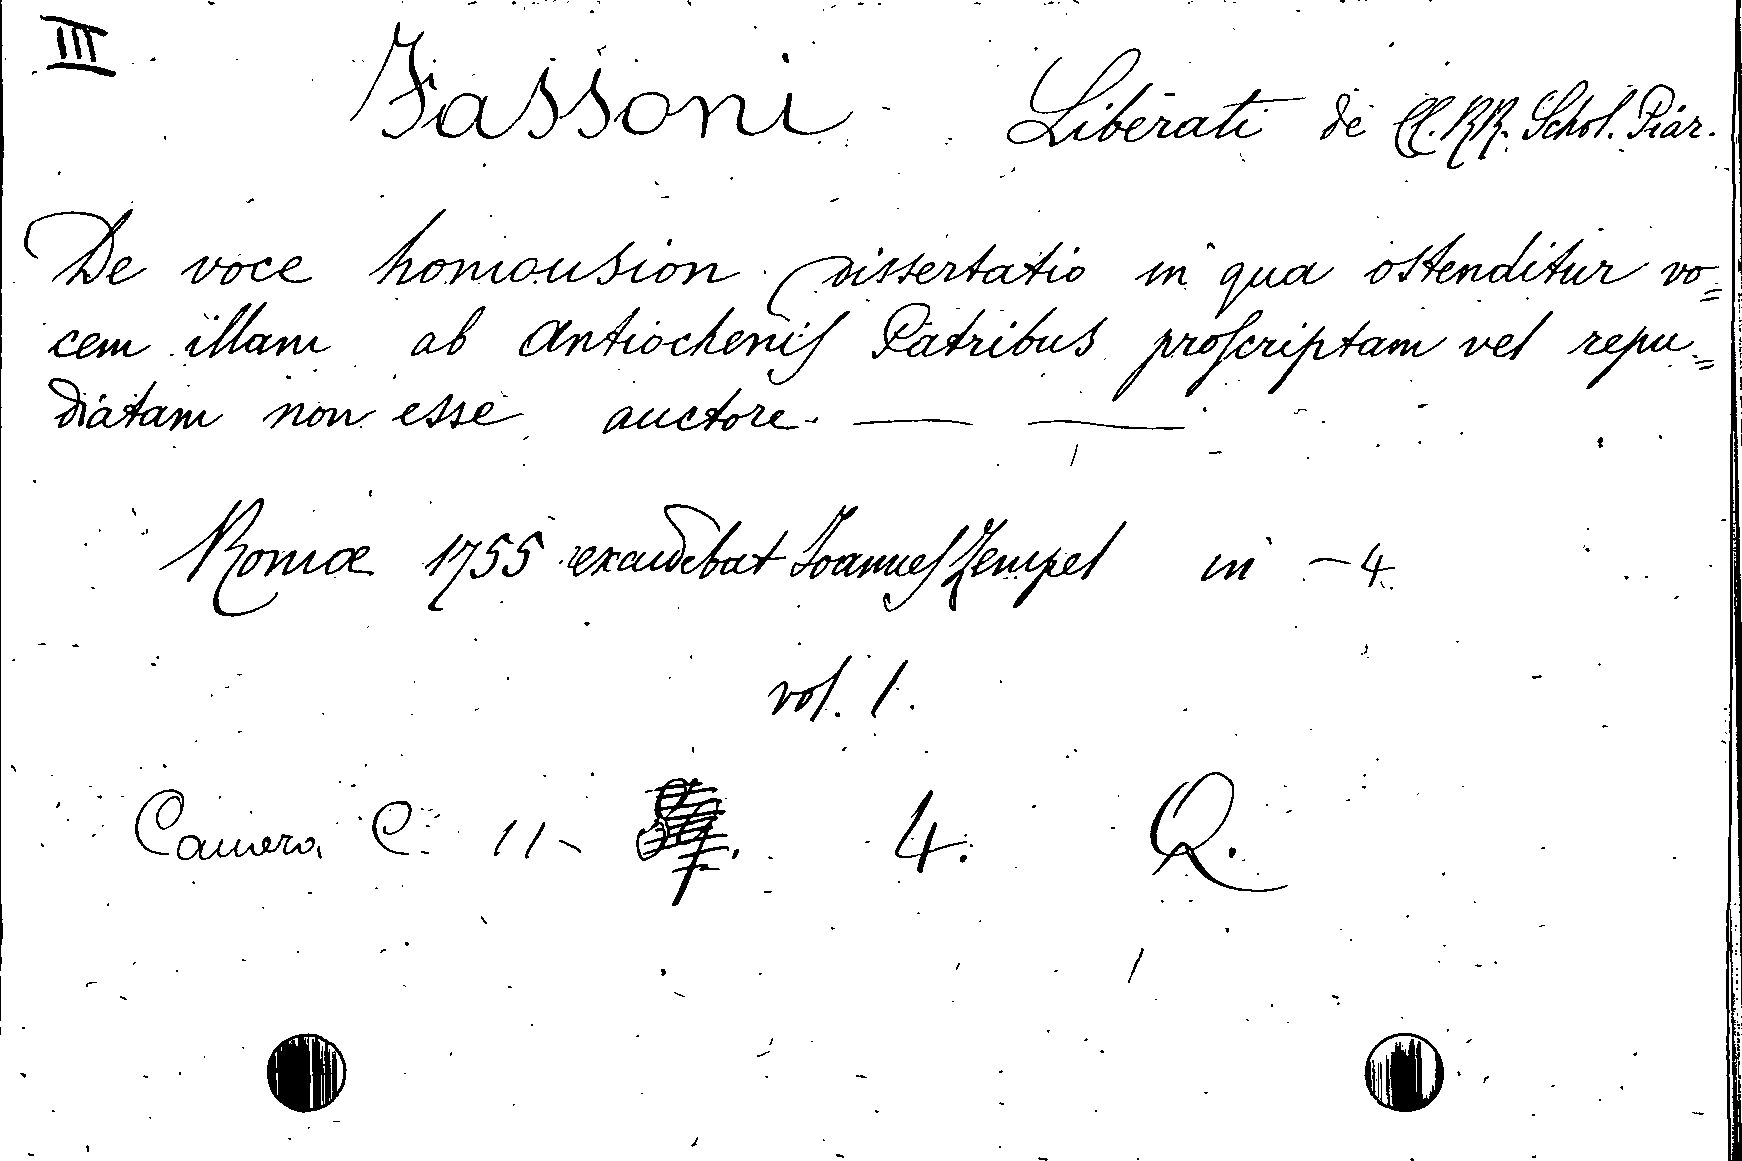 III Fassoni Liberati de Cl. RR. Schol. Piar.
De voce homousion Dissertatio in qua ostenditur vo=
cem illam ab Antiochenis Patribus proscriptam vel repu=
diatam non esse auctore — —
Romæ 1755 excudebat Ioannes Zempel in - 4.
vol. 1.
Camera C. 11- 4. Q.